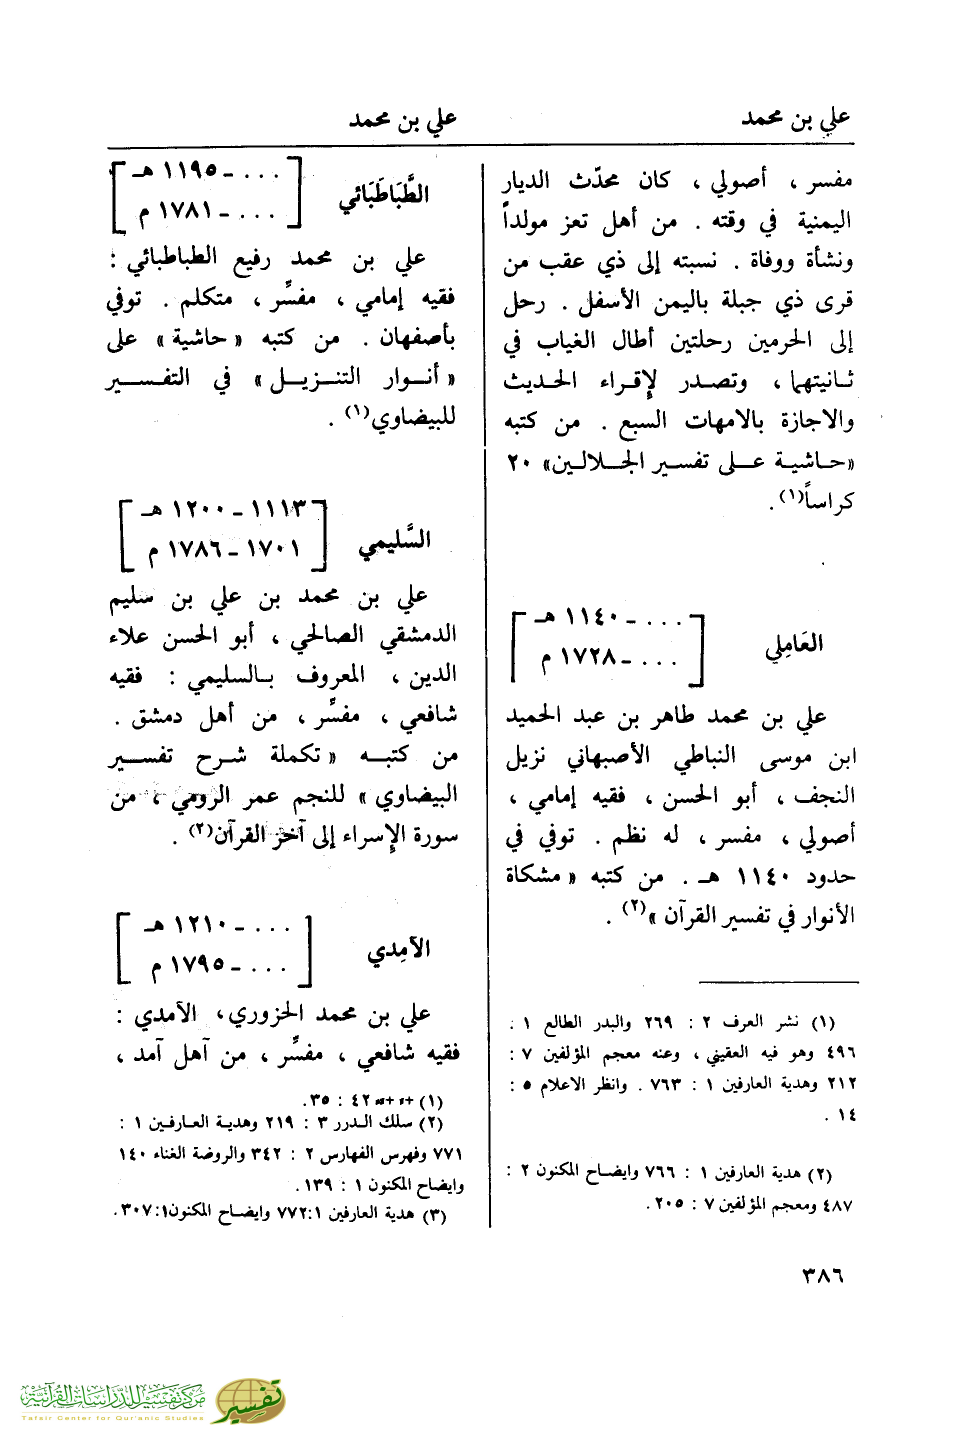 علي بن محمد
علي بن محمد
مفسر ، أصولي ، كان محدّث الديار
اليمنية في وقته . من أهل تعز مولداً
ونشأة ووفاة . نسبته إلى ذي عقب من
قرى ذي جبلة باليمن الأسفل . رحل
إلى الحرمين رحلتين أطال الغياب في
ثانيتهما ، وتصدر لإقراء الحديث
والاجازة بالامهات السبع . من كتبه
«حاشية على تفسير الجلالين» ٢٠
كراساً(١) .
العَامِلي
[ . . . ـ ١١٤٠ هـ
. . . ـ ١٧٢٨ م ]
علي بن محمد طاهر بن عبد الحميد
ابن موسى النباطي الأصبهاني نزيل
النجف ، أبو الحسن ، فقيه إمامي ،
أصولي ، مفسر ، له نظم . توفي في
حدود ١١٤٠ هـ . من كتبه « مشكاة
الأنوار في تفسير القرآن »(٢) .
(١) نشر العرف ٢ : ٢٦٩ والبدر الطالع ١ :
٤٩٦ وهو فيه العقيني ، وعنه معجم المؤلفين ٧ :
٢١٢ وهدية العارفين ١ : ٧٦٣ . وانظر الاعلام ٥ :
١٤ .
(٢) هدية العارفين ١ : ٧٦٦ وايضاح المكنون ٢ :
٤٨٧ ومعجم المؤلفين ٧ : ٢٠٥ .
الطَّبَاطَبَائي
[ . . . ـ ١١٩٥ هـ
. . . ـ ١٧٨١ م ]
علي بن محمد رفيع الطباطبائي :
فقيه إمامي ، مفسِّر ، متكلم . توفي
بأصفهان . من كتبه « حاشية » على
« أنوار التنزيل » في التفسير
للبيضاوي(١) .
السَّليمي
[ ١١١٣ ـ ١٢٠٠ هـ
١٧٠١ ـ ١٧٨٦ م ]
علي بن محمد بن علي بن سليم
الدمشقي الصالحي ، أبو الحسن علاء
الدين ، المعروف بالسليمي : فقيه
شافعي ، مفسِّر ، من أهل دمشق .
من كتبه « تكملة شرح تفسير
البيضاوي » للنجم عمر الرومي ، من
سورة الإسراء إلى آخر القرآن(٢) .
الآمِدي
[ . . . ـ ١٢١٠ هـ
. . . ـ ١٧٩٥ م ]
علي بن محمد الحزوري ، الآمدي :
فقيه شافعي ، مفسِّر ، من آهل آمد ،
(١) ٤٢ : ٣٥ .
(٢) سلك الدرر ٣ : ٢١٩ وهدية العارفين ١ :
٧٧١ وفهرس الفهارس ٢ : ٣٤٢ والروضة الغناء ١٤٠
وايضاح المكنون ١ : ١٣٩ .
(٣) هدية العارفين ١:‏٧٧٢ وايضاح المكنون١:‏٣٠٧ .
٣٨٦
مركز تفسير للدراسات القرآنية
Tafsir Center for Qur'anic Studies
تفسير